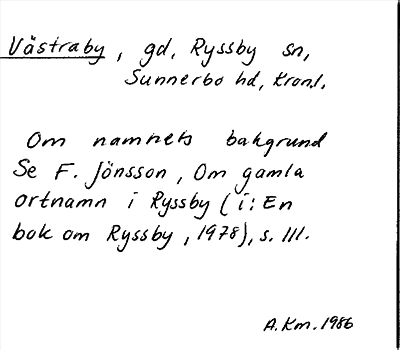 Västraby, gd, Ryssby sn,
Sunnerbo hd, Kronl.
Om namnets bakgrund
Se F. Jönsson, Om gamla
ortnamn i Ryssby (i: En
bok om Ryssby, 1978), s. 111.
A.Km. 1986